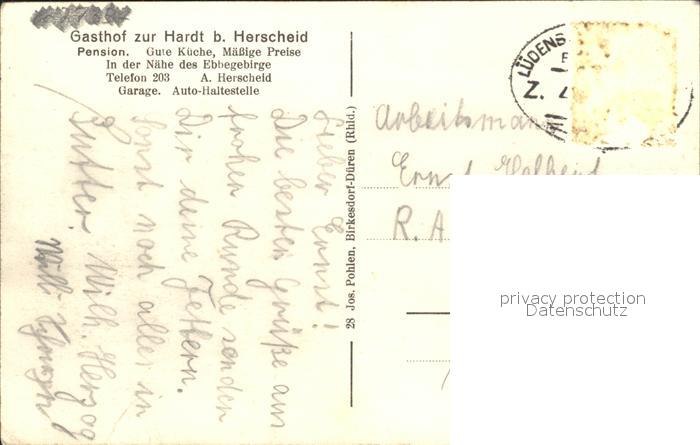 Gasthof zur Hardt b. Herscheid
Pension. Gute Küche, Mäßige Preise
In der Nähe des Ebbegebirge
Telefon 203 A. Herscheid
Garage. Auto-Haltestelle
Lieber Ernst!
Die besten Grüße aus
frohen Runde senden
Dir deine
Sonst noch alles in
Butter. Wilh. Herzog
Willi
28 Jos. Pohlen, Birkesdorf-Düren (Rhld.)
LÜDENS
Z.
Arbeitsmann
Ernst
R. A
privacy protection
Datenschutz